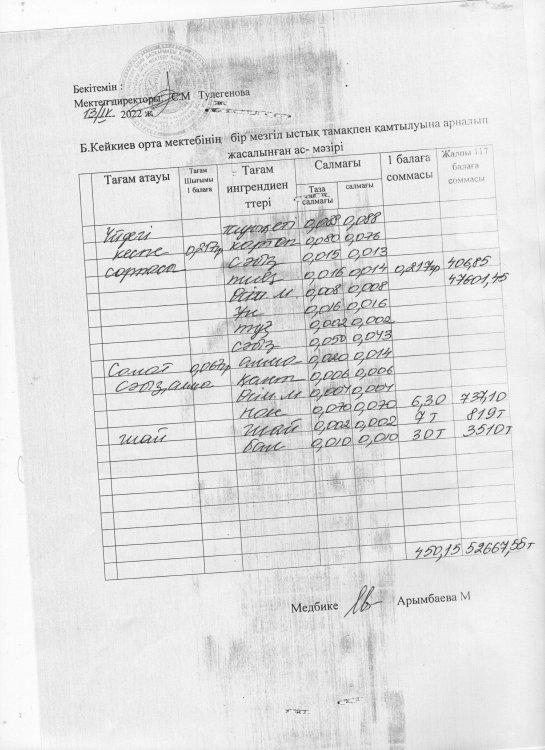 Бекітемін :
Мектеп директоры С.М Тулегенова
13/IV 2022 ж
Б.Кейкиев орта мектебінің бір мезгіл ыстық тамақпен қамтылуына арналып
жасалынған ас- мәзірі
Тағам атауы Тағам Шығымы 1 балаға Тағам ингредиен ттері Салмағы 1 балаға соммасы Жалпы 117 балаға соммасы
Таза салмағы салмағы
Үйдегі 0,088 0,088
кеспе 0,217гр картоп 0,080 0,076
сорпасы сәбіз 0,015 0,013
пияз 0,016 0,014 0,217гр 406,85
Өсім м. 0,008 0,008 47601,45
Ұн 0,016 0,016
тұз 0,002 0,002
сәбіз 0,050 0,043
Салат 0,067гр алма 0,020 0,014
сәбіз,алма қант 0,006 0,006
Өсім м 0,004 0,004
Нан 0,070 0,070 6,30 737,10
шай шай 0,002 0,002 7 т 819т
бал 0,010 0,010 30т 3510т
450,15 52667,55т
Медбике Арымбаева М